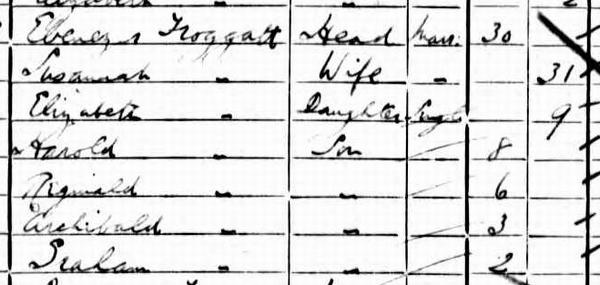 Elizabeth „ 2
Ebenezer Froggatt Head Marr. 30
Susannah „ Wife „ 31
Elizabeth Daughter Single 9
Harold „ Son 8
Riginald „ „ 6
Archibald „ „ 3
Graham „ „ 2